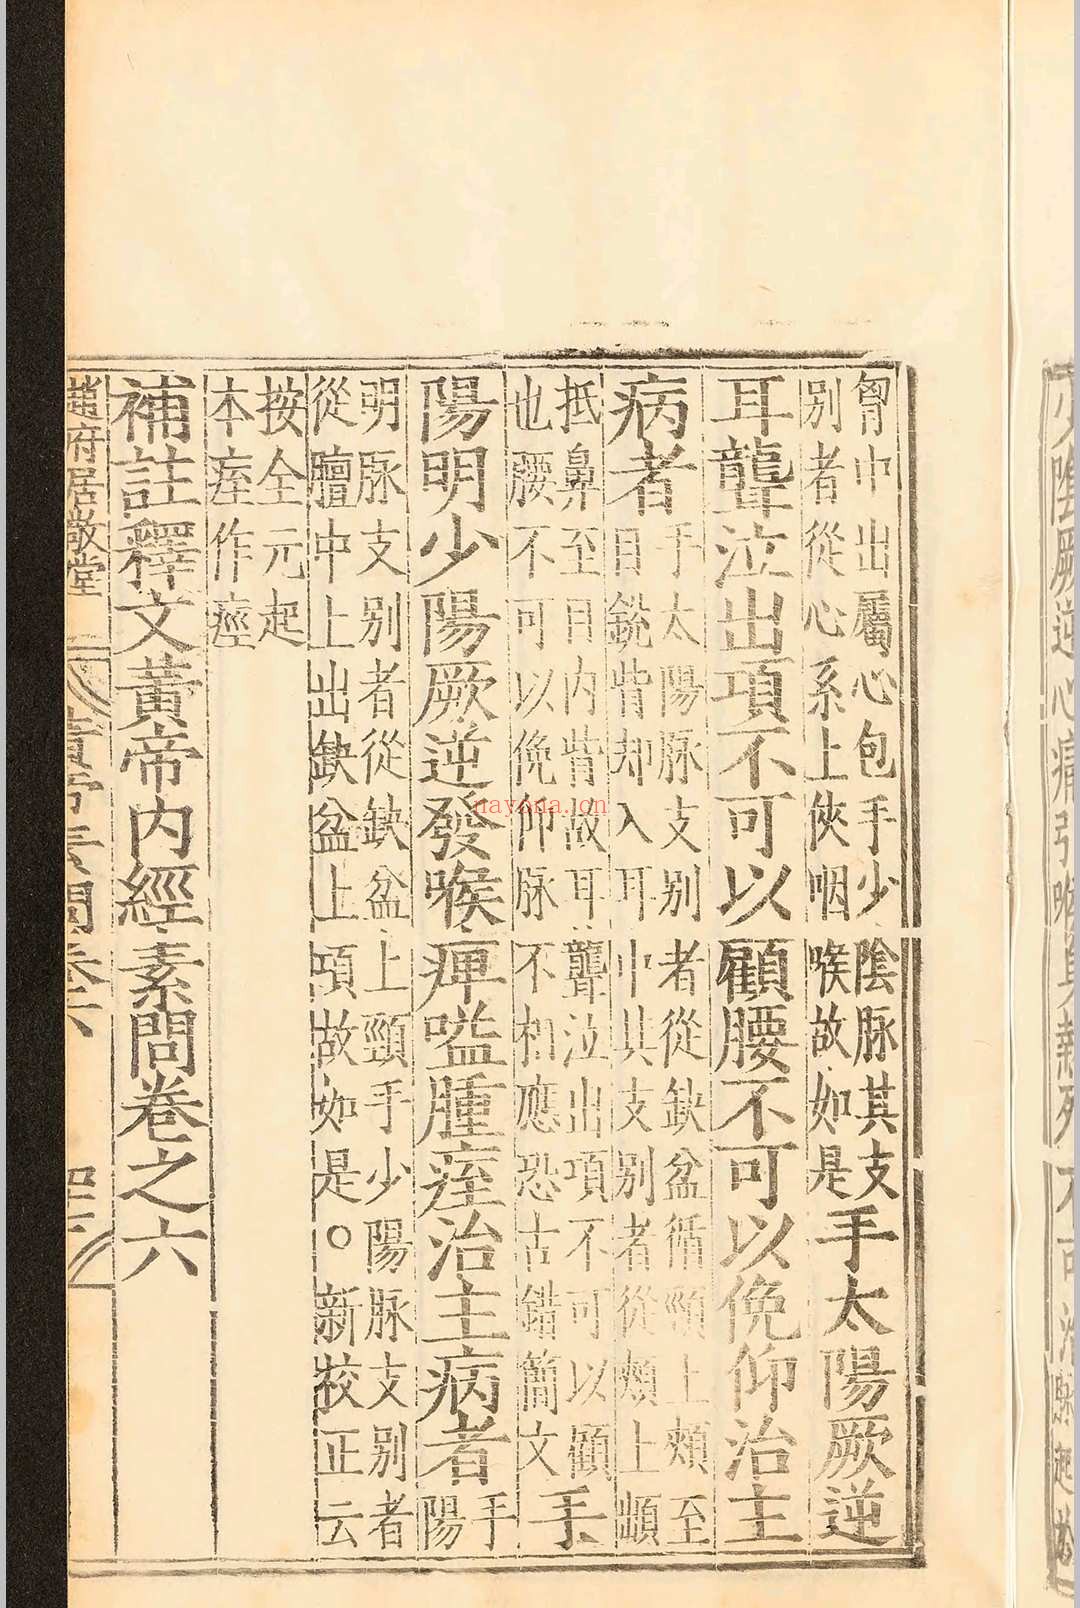 胷中出屬心包手少陰脉其支
别者從心系上俠咽喉故如是
手太陽厥逆
耳聾泣出項不可以顧腰不可以俛仰治主
病者
手太陽脉支别者從缺盆循頸上頰至
目銳眥却入耳中其支别者從頰上䪼
抵鼻至目内眥故耳聾泣出項不可以顧
也腰不可以俛仰脉不相應恐古錯簡文
手
陽明少陽厥逆發喉痺嗌腫痓治主病者
手
陽
明脉支别者從缺盆上頸手少陽脉支别者
從膻中上出缺盆上項故如是○新校正云
按全元起
本痓作痙
補註釋文黃帝内經素問卷之六
趙府居敬堂
素問卷六
nayona.cn